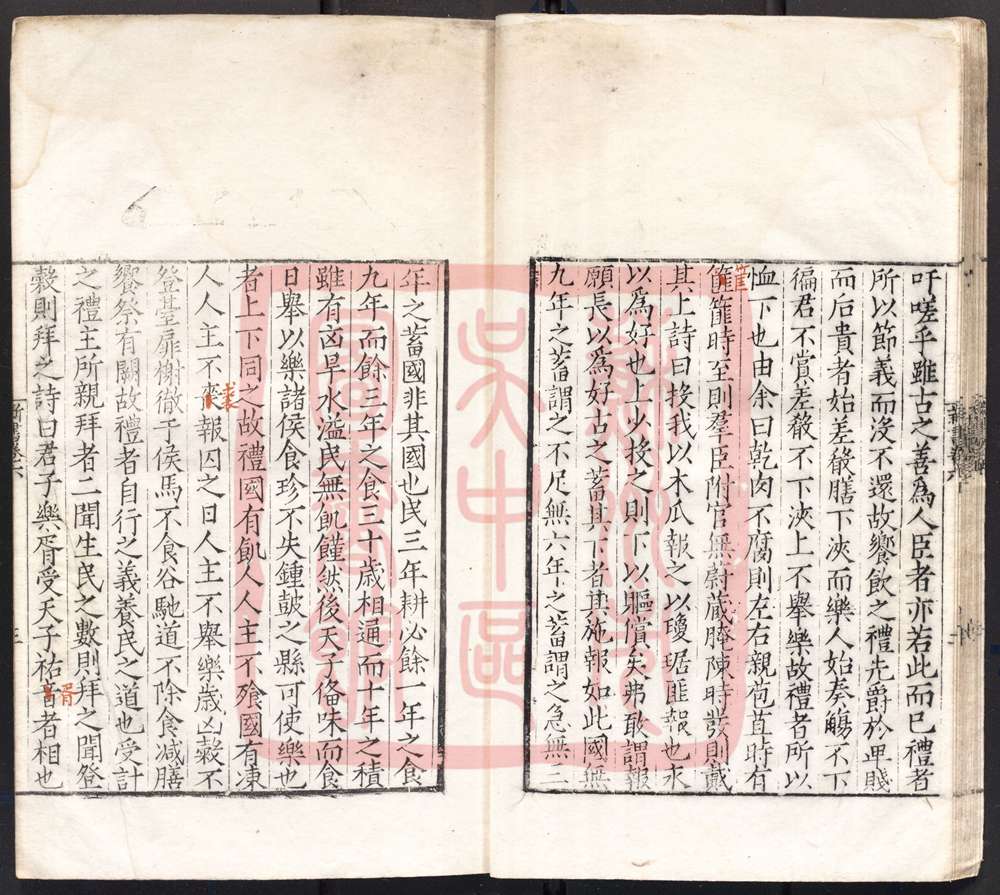 吁嗟乎雖古之善為人臣者亦若此而巳禮者
所以節義而沒不還故饗飲之禮先爵於𤰞賤
而后貴者始差殽膳下浹而樂人始奏觴不下
徧君不賞差殽不下浹上不舉樂故禮者所以
恤下也由余曰乾肉不腐則左右親苞苴時有
筐篚時至則羣臣附官無蔚藏腌陳時發則戴
其上詩曰投我以木瓜報之以瓊琚匪報也永
以為好也上少投之則下以軀償矣弗敢謂報
願長以為好古之蓄其下者其施報如此國無
九年之蓄謂之不足無六年之蓄謂之急無三
年之蓄國非其國也民三年耕必餘一年之食
九年而餘三年之食三十歲相通而十年之積
雖有凶旱水溢民無飢饉然後天子俻味而食
日舉以樂諸侯食珍不失鍾鼓之縣可使樂也
者上下同之故禮國有飢人人主不飱國有凍
人人主不裘報囚之日人主不舉樂歲凶穀不
登臺扉榭徹于侯馬不食谷馳道不除食減膳
饗祭有闕故禮者自行之義養民之道也受計
之禮主所親拜者二聞生民之數則拜之聞登
穀則拜之詩曰君子樂胥受天子祜胥者相也
新書卷六
三